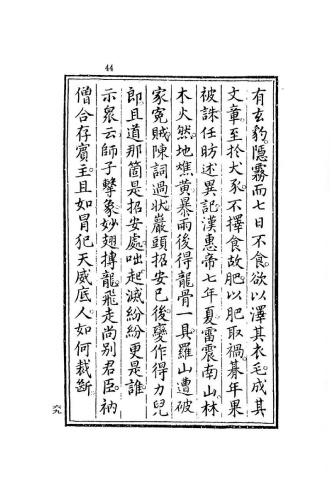 44
有玄豹隱霧而七日不食欲以澤其衣毛成其
文章至於犬豕不擇食故肥以肥取禍朞年果
被誅任昉述異記漢惠帝七年夏雷震南山林
木火然地燋黄暴雨後得龍骨一具羅山遭破
家寃賊陳詞過状巖頭招安巳後變作得力兒
郎且道那箇是招安處咄起滅紛紛更是誰
示衆云師子擊象妙翅搏龍飛走尚別君臣衲
僧合存賓主且如冒犯天威底人如何裁斷
六九